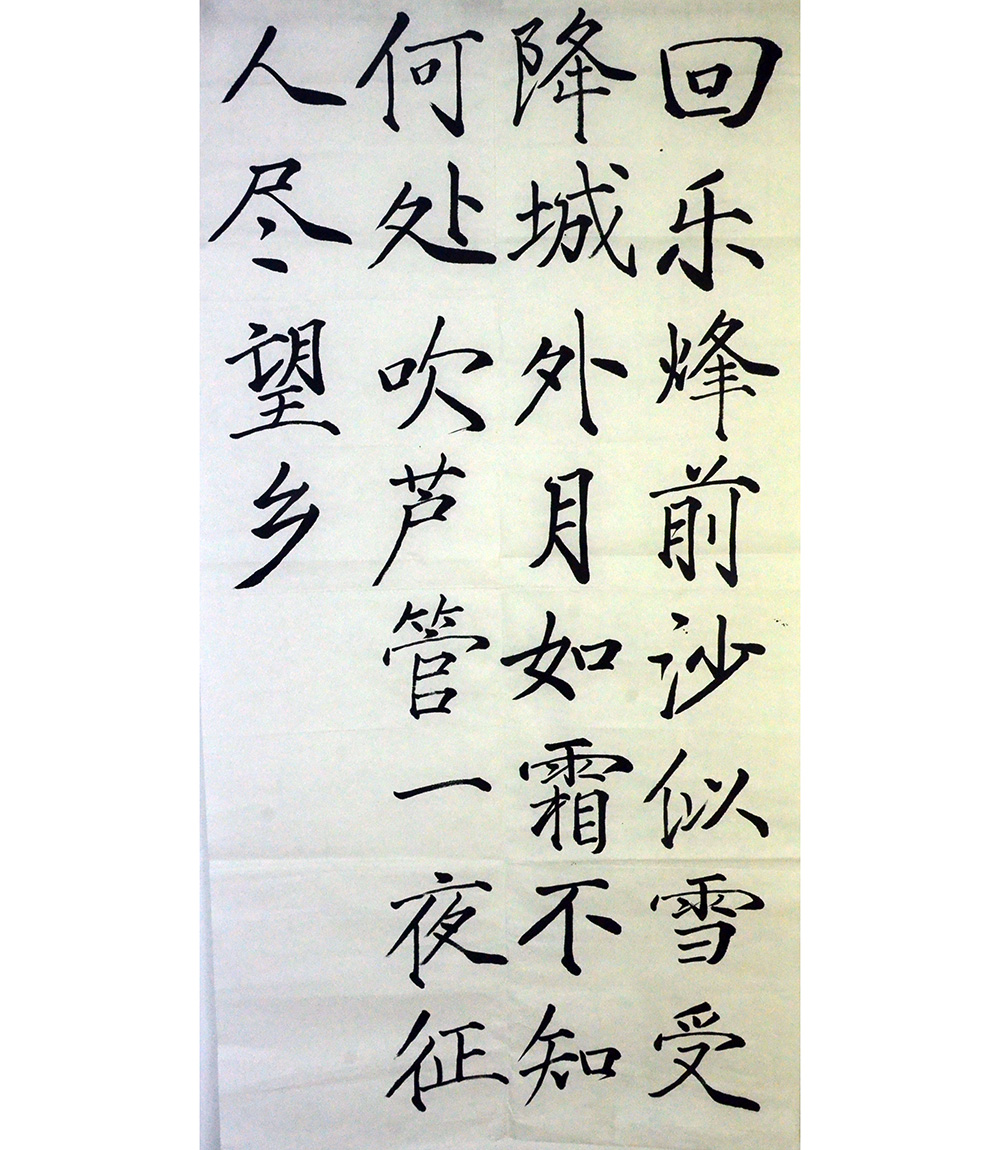 回乐烽前沙似雪受
降城外月如霜不知
何处吹芦管一夜征
人尽望乡